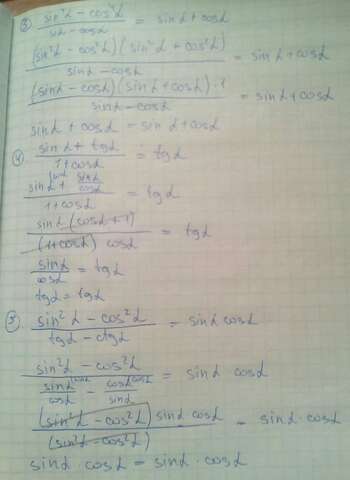 ③ (sin⁴α − cos⁴α)/(sinα − cosα) = sinα + cosα
(sin²α − cos²α)(sin²α + cos²α)/(sinα − cosα) = sinα + cosα
(sinα − cosα)(sinα + cosα)·1/(sinα − cosα) = sinα + cosα
sinα + cosα = sinα + cosα
④ (sinα + tgα)/(1 + cosα) = tgα
(sinα + sinα/cosα)/(1 + cosα) = tgα
sinα (cosα + 1)/((1 + cosα) cosα) = tgα
sinα/cosα = tgα
tgα = tgα
⑤ (sin²α − cos²α)/(tgα − ctgα) = sinα cosα
(sin²α − cos²α)/(sinα/cosα − cosα/sinα) = sinα cosα
(sin²α − cos²α) sinα cosα/(sin²α − cos²α) = sinα · cosα
sinα · cosα = sinα · cosα